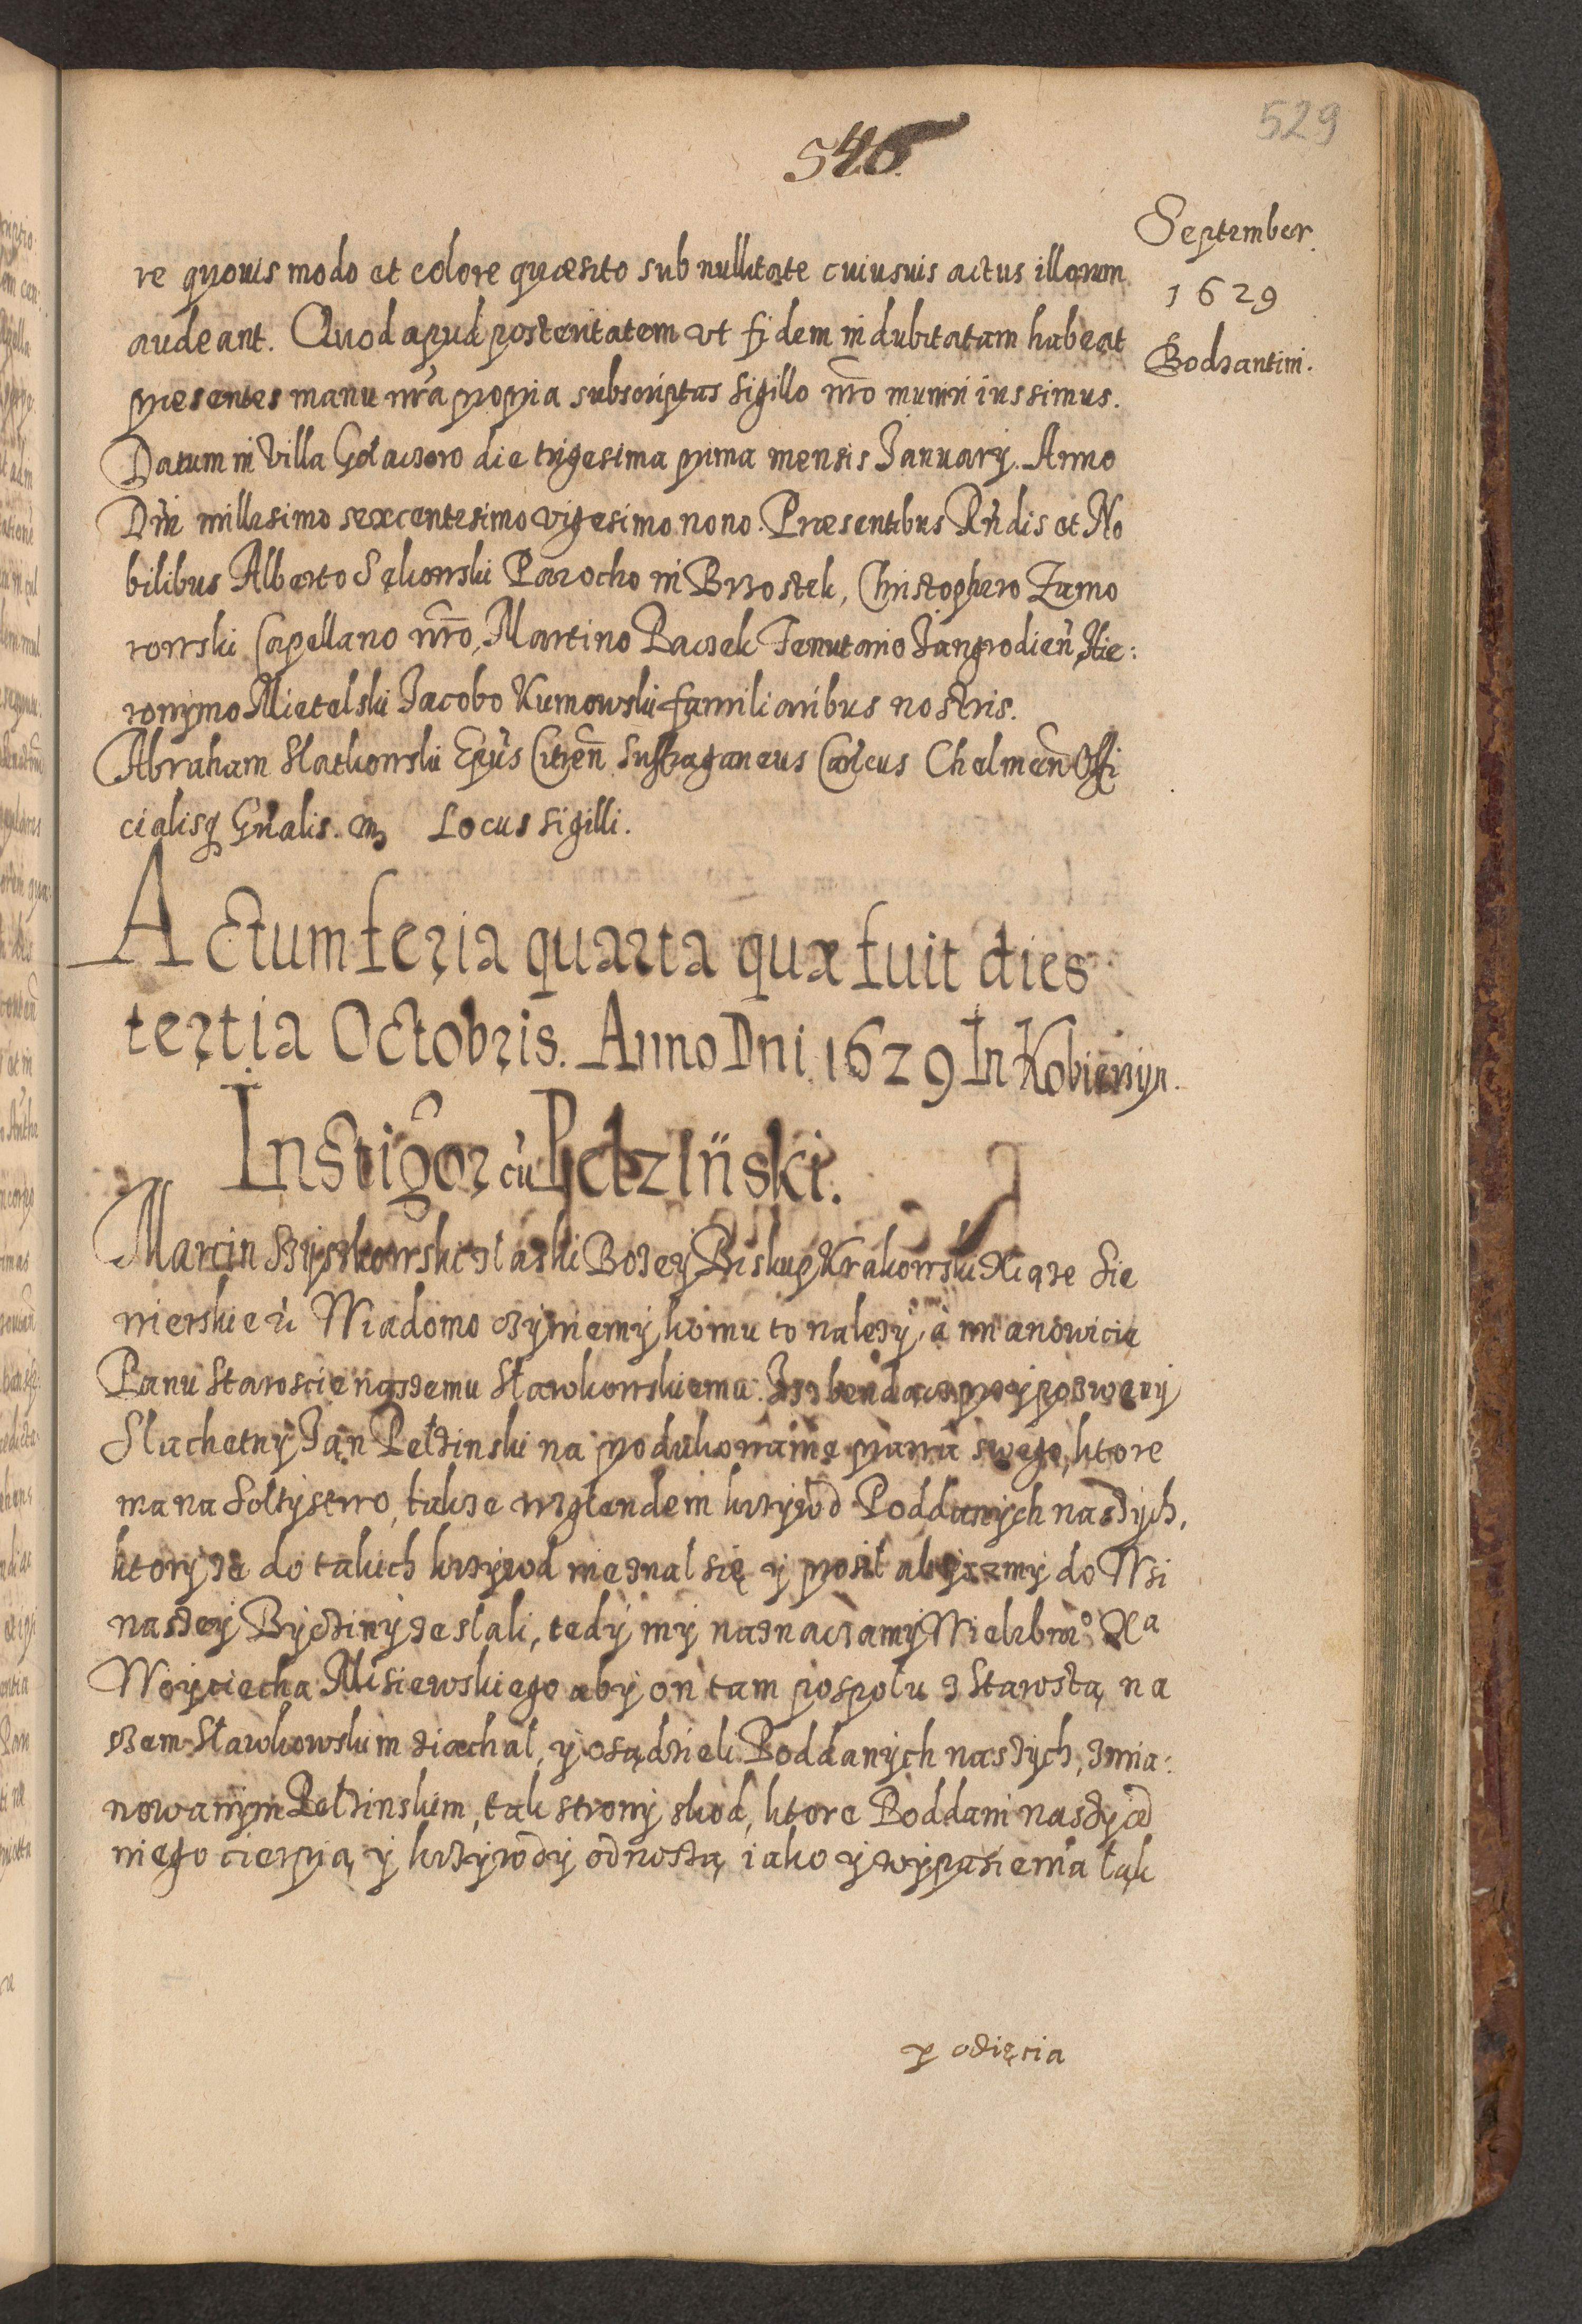 529
546
September
1629
Bodzantini.
re quouis modo et colore quæsito sub nullitate cuiusuis actus illorum
audeant. Quod apud posteritatem vt fidem indubitatam habeat
presentes manu nr̃a propria subscriptas sigillo nr̃o muniri iussimus.
Datum in Villa Golaczow die trigesima prima mensis Ianuarij. Anno
Dñi millesimo sexcentesimo vigesimo nono. Præsentibus Rñdis et No
bilibus Alberto Sękowski Parocho in Brzostek, Christophero Zamo
rowski Capellano nr̃o, Martino Baczek Tenutario Jangrodień, Hie:
ronymo Mietelski Jacobo Kumowski familiaribus nostris.
Abraham Slatkowski Epũs Citreñ Suffraganeus Cañcus Chelmeñ Offi
cialisq Gñalis. mp Locus sigilli.
Actum feria quarta quæ fuit dies
tertia Octobris. Anno Dni 1629 In Kobierzyn.
Instigor̃ cũ Pelziński.
Marcin Szyszkowski z łaski Bozey Biskup Krakowski Xiąze Sie
wierskie ꝛc Wiadomo czyniemy komu to nalezy, a mianowicie
Panu Staroscie naszemu Sławkowskiemu. Isz bendąc przypozwany
Slachetny Jan Pełzinski na produkowanie prawa swego, ktore
ma na Soltystwo, takze wzglendem krzywd Poddanych naszych,
ktory ze do takich krzywd nieznal się y prosił abyszmy do Wsi
naszey Byczyny zeslali, tedy my naznaczamy Wielebne° Xa
Woyciecha Misiewskiego aby on tam pospołu z Starostą na
szem Sławkowskim ziechał, y osądzieli Poddanych naszych, z mia:
nowanym Pełzinskim, tak strony szkod, ktore Poddani naszy od
niego cierpią y krzywdy odnoszą iako y wypasienia łąk
y odięcia